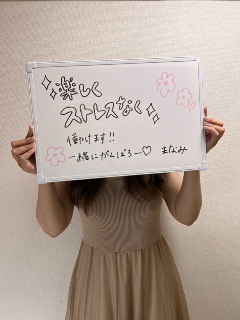 楽しく
ストレスなく
働けます!!
一緒にがんばろー♡ まなみ